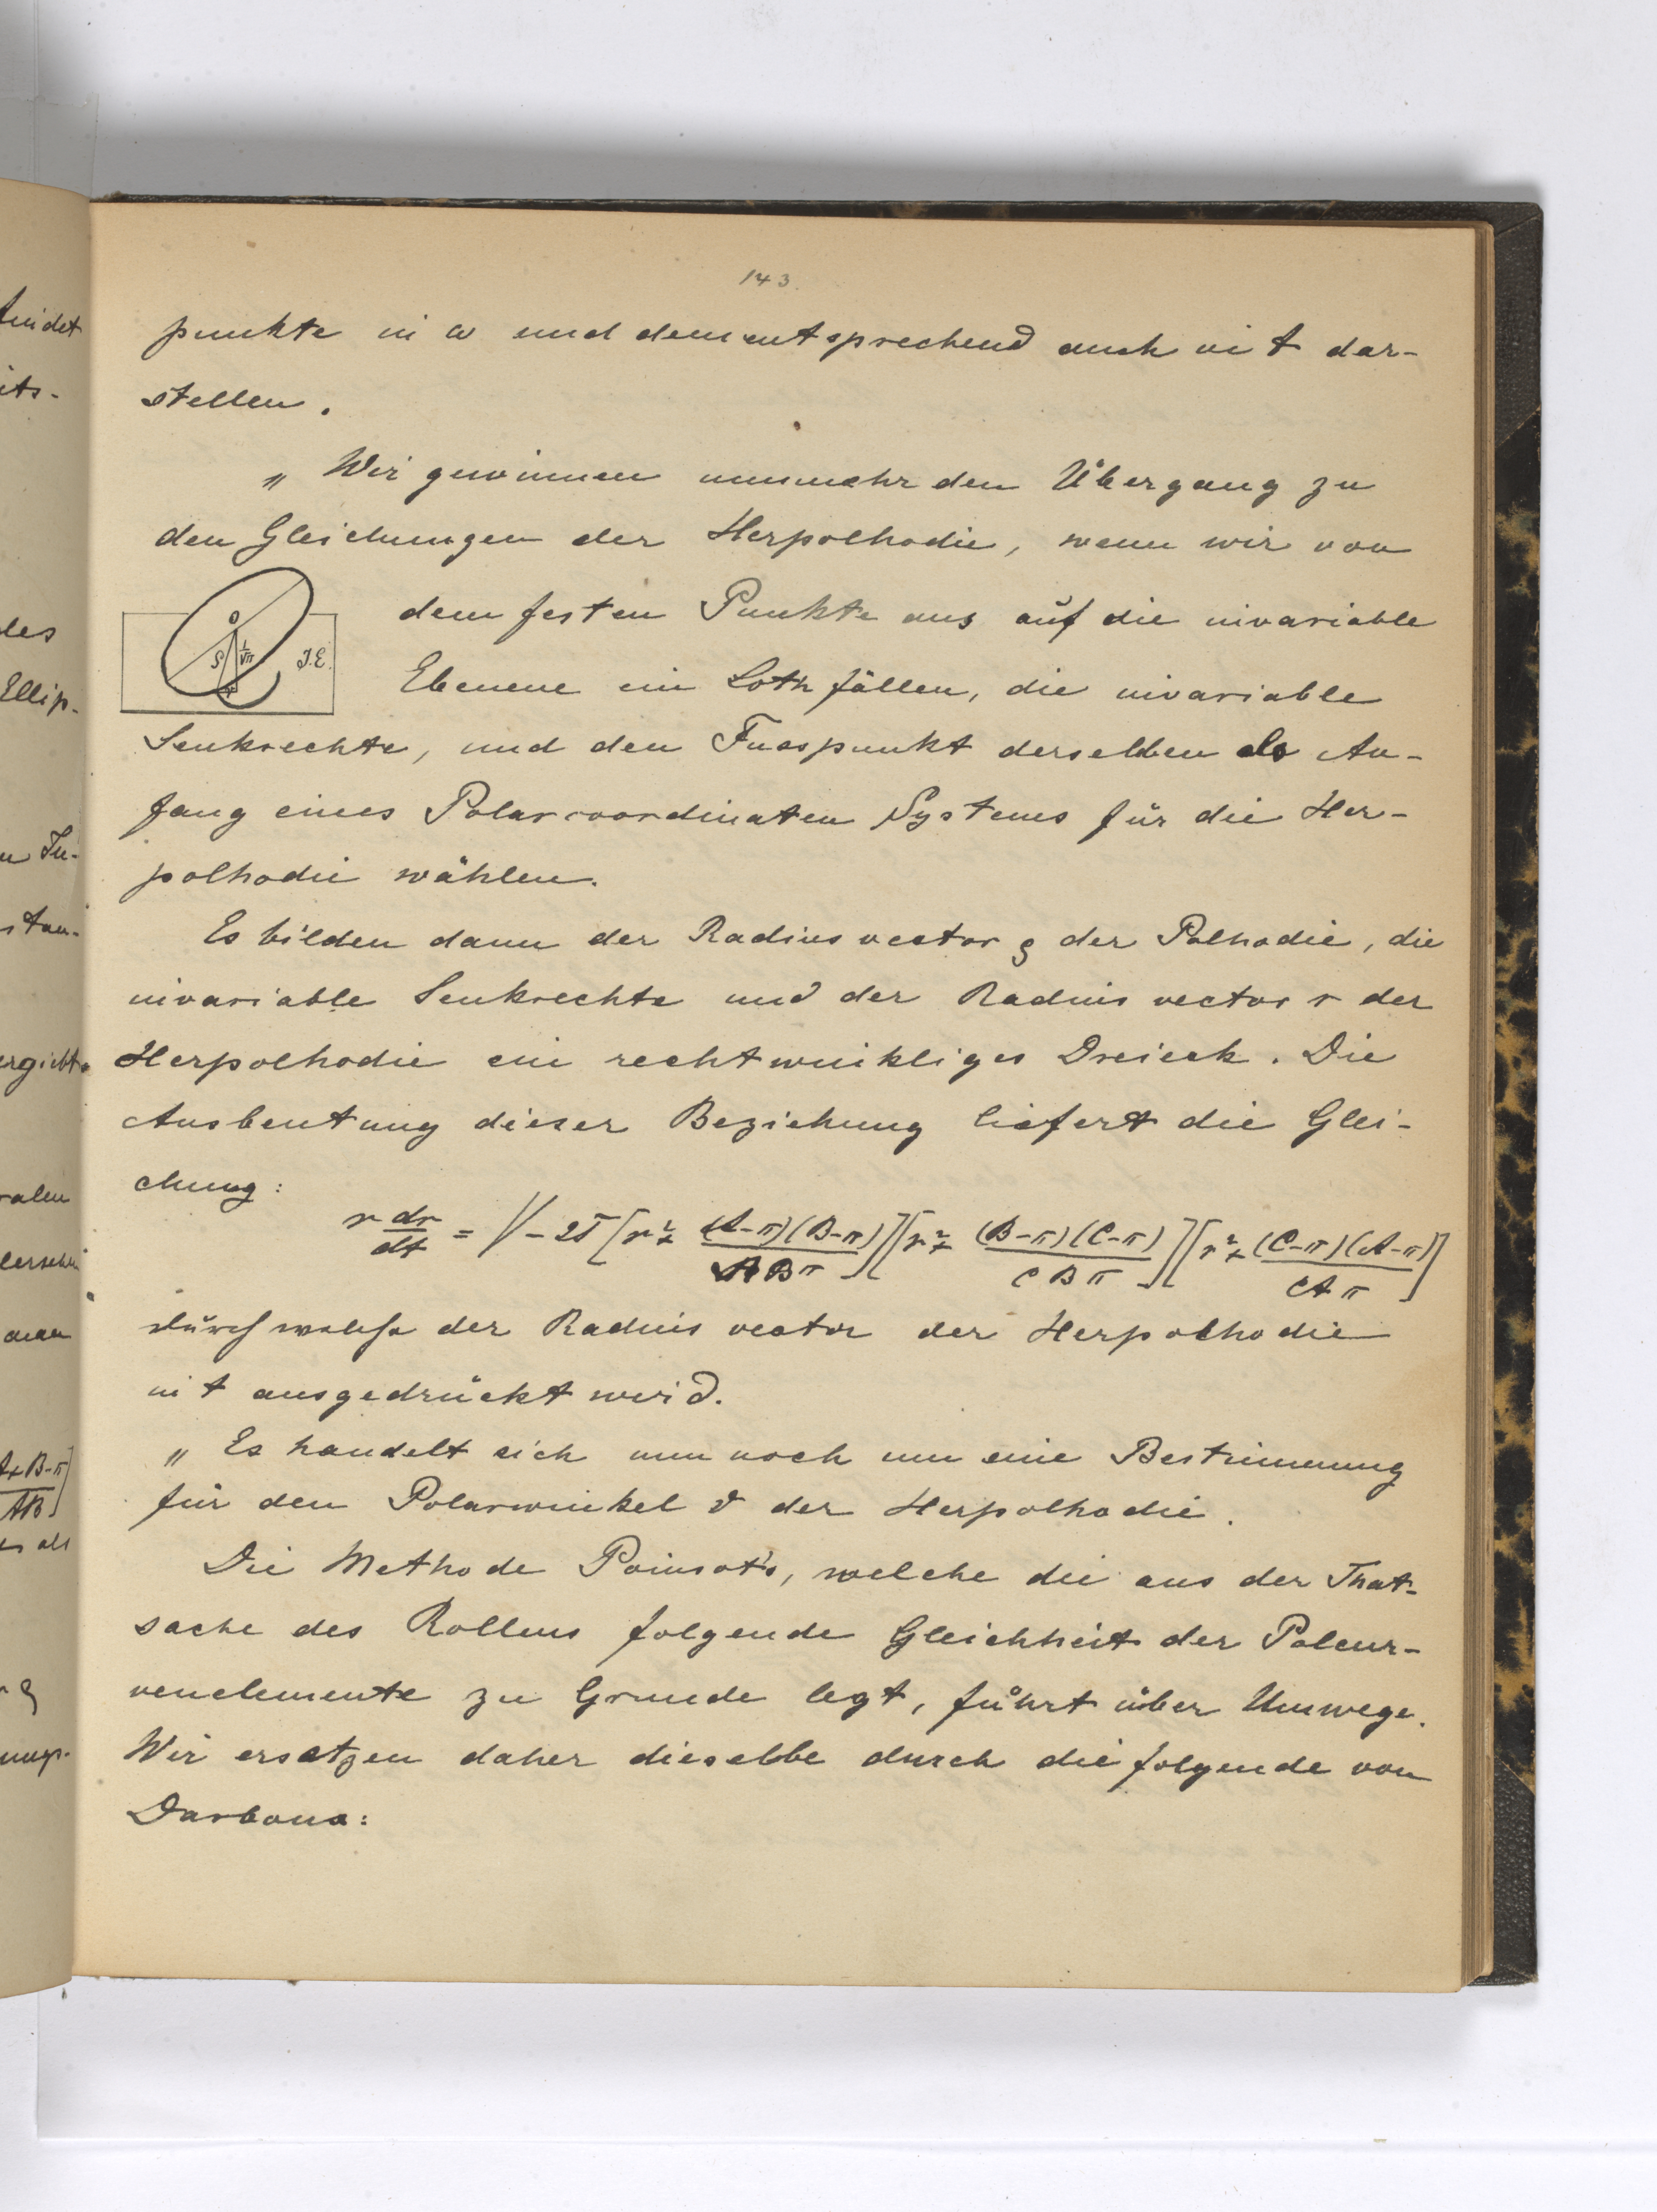 143.
punkte in ω und dementsprechend auch in t dar-
stellen.
„ Wir gewinnen nunmehr den Übergang zu
den Gleichungen der Herpolhodie, wenn wir von
dem festen Punkte aus auf die invariable
Ebenene ein Loth fällen, die invariable
Senkrechte, und den Fusspunkt derselben als An-
fang eines Polarcoordinaten Systems für die Her-
polhodie wählen.
O
ρ 1/√π J.E.
r
Es bilden dann der Radius vector ρ der Polhodie, die
invariable Senkrechte und der Radius vector r der
Herpolhodie ein rechtwinkliges Dreieck. Die
Ausbeutung dieser Beziehung liefert die Glei-
chung:
r dr/dt = √ - 2T [r² + (A-π)(B-π)/ABπ][r² + (B-π)(C-π)/CBπ][r² + (C-π)(A-π)/CAπ]
durch welche der Radius vector der Herpolhodie
in t ausgedrückt wird.
„ Es handelt sich nun noch um eine Bestimmung
für den Polarwinkel ϑ der Herpolhodie.
Die Methode Poinsot's, welche die aus der That-
sache des Rollens folgende Gleichheit der Polcur-
venelemente zu Grunde legt, führt über Umwege.
Wir ersetzen daher dieselbe durch die folgende von
Darboux: